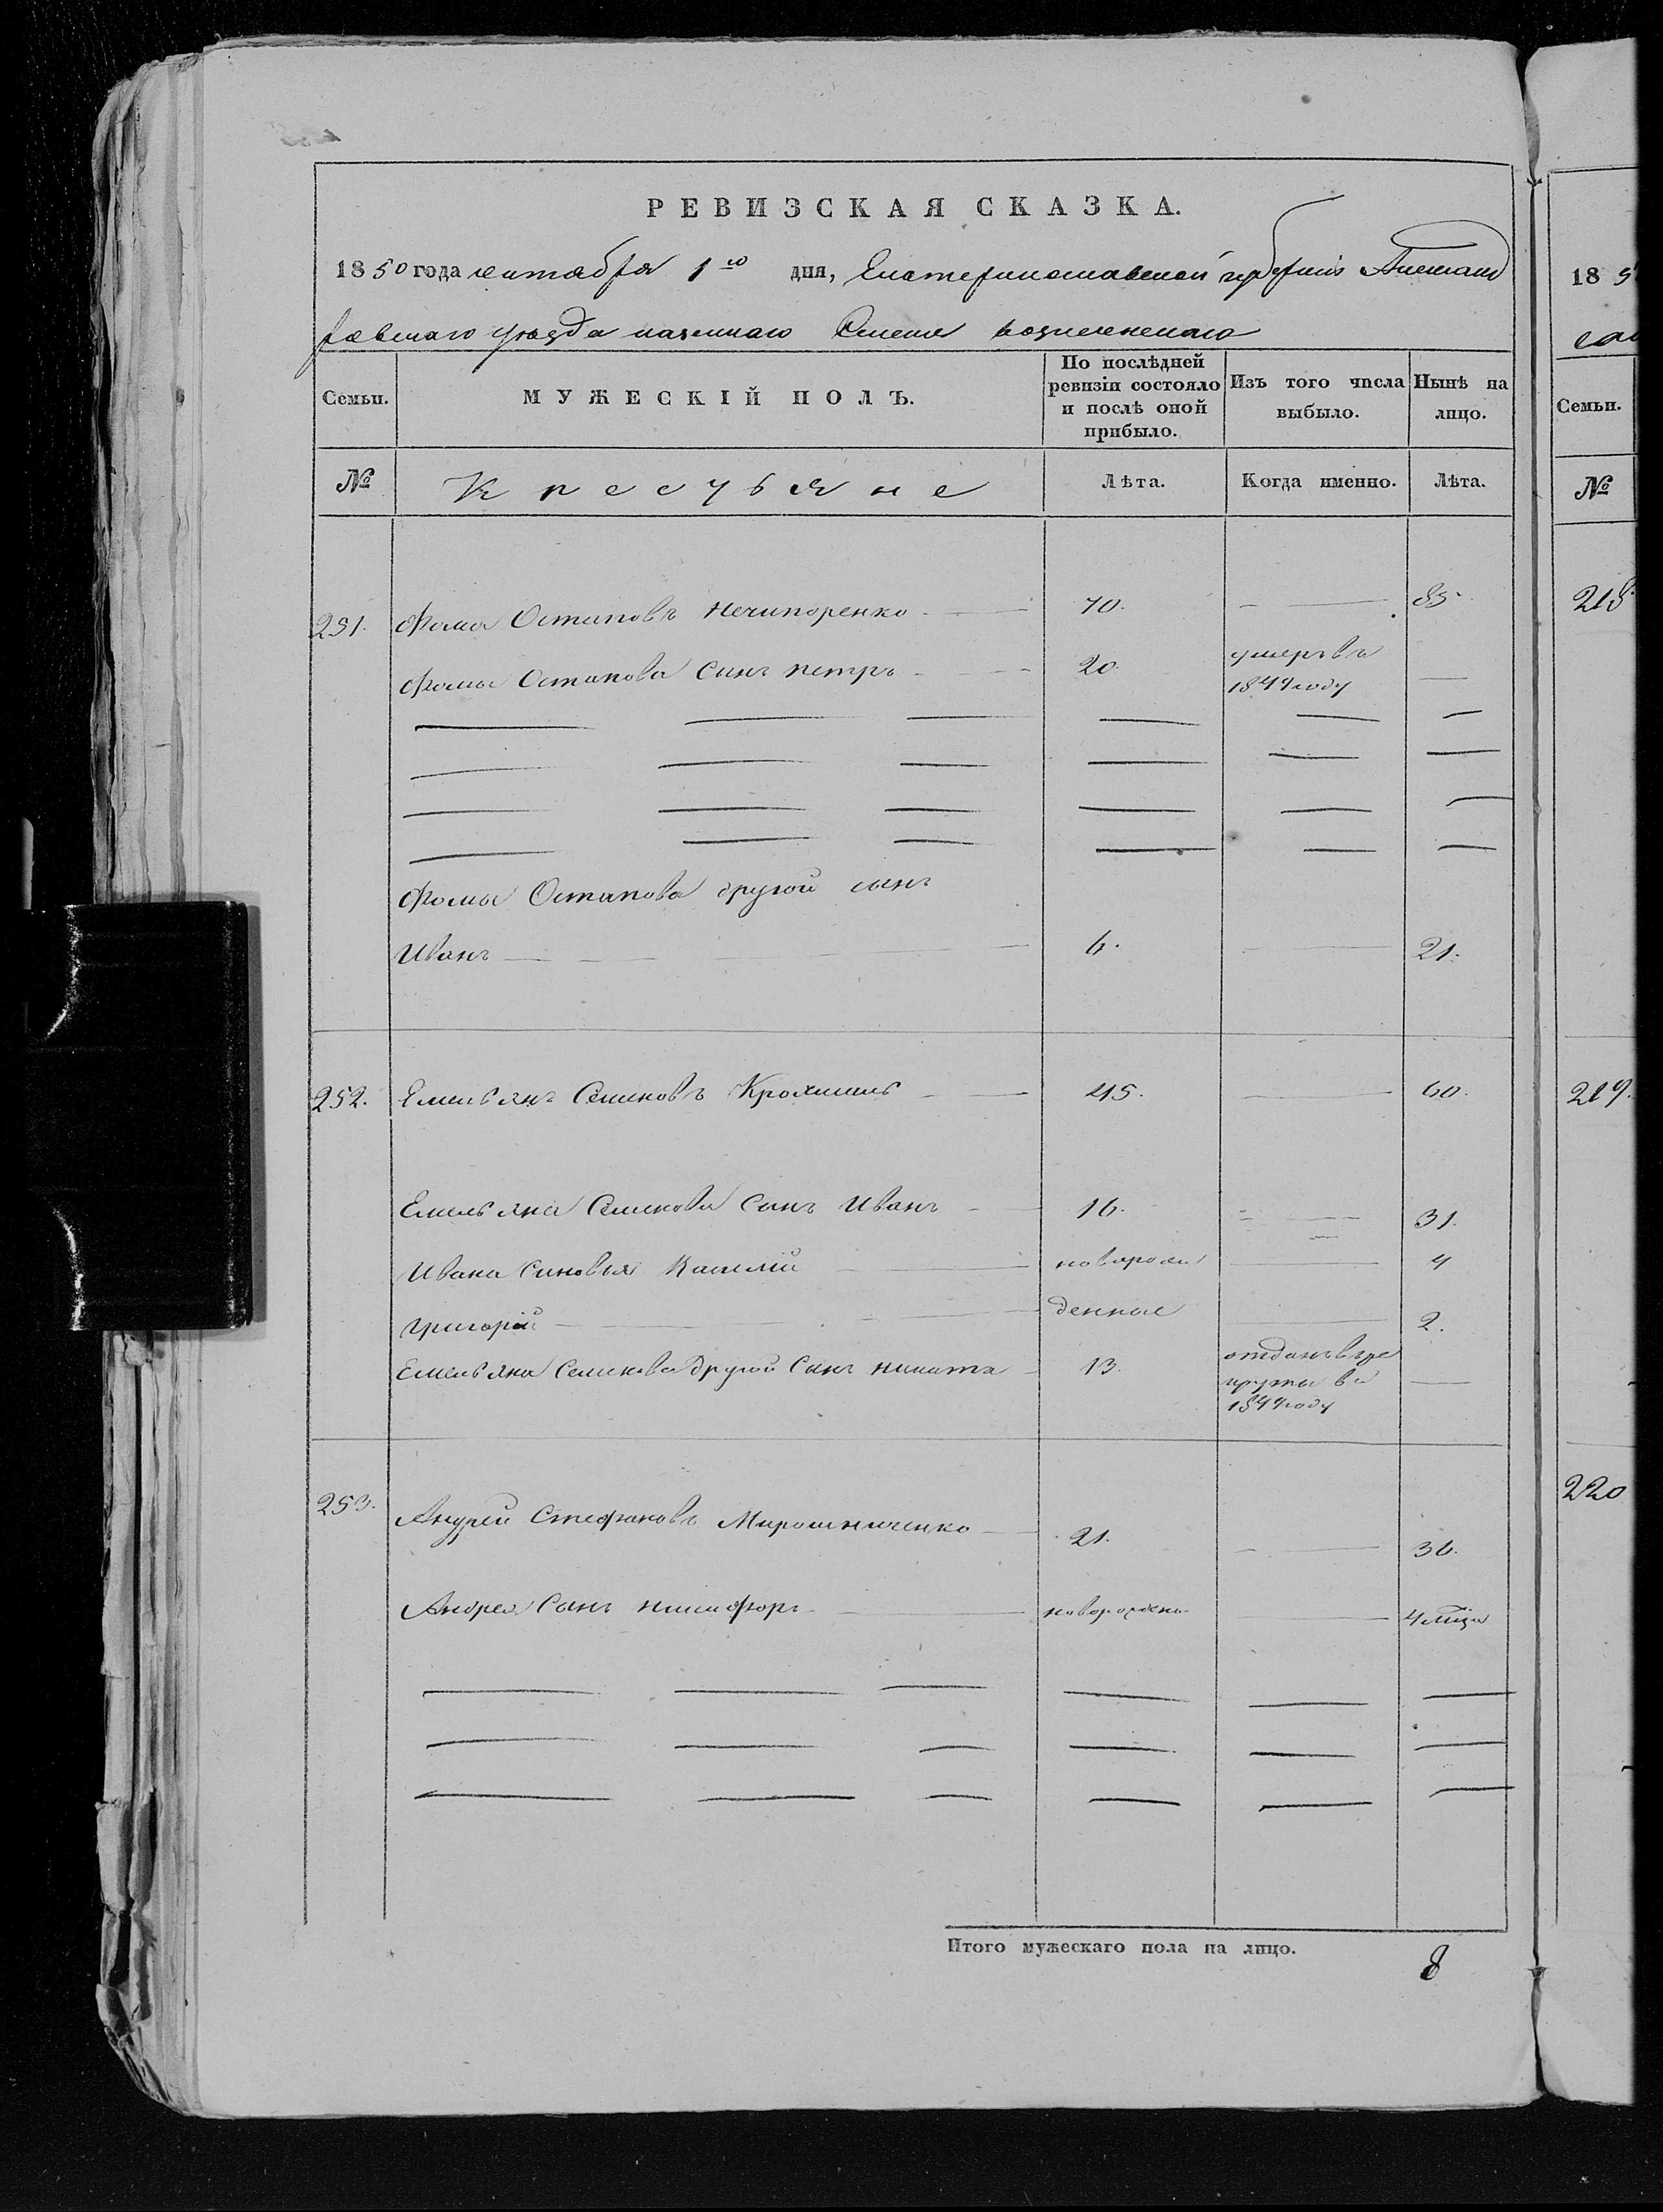 РЕВИЗСКАЯ СКАЗКА.
1850 года октября 1го дня, Екатеринославской губернiи Александ
ровскаго уѣзда казеннаго Селенiя вознесенскаго
Семьи. МУЖЕСКIЙ ПОЛЪ. По послѣдней ревизiи состояло и послѣ оной прибыло. Изъ того числа выбыло. Нынѣ на лицо.
№ Крестьяне Лѣта. Когда именно. Лѣта.
251. Фома Остаповъ Нечипоренко 70. 85
Фомы Остапова Сынъ петръ 20. умеръ въ 1844 году
Фомы Остапова другой сынъ
Иванъ 6. 21.
252. Емельянъ Семеновъ 45. 60.
Емельяна Семенова Сынъ Иванъ 16. 31.
Ивана Сыновья Василiй новорож 4
григорiй денные 2.
Емельяна Семенова другой Сынъ никита 13. отданъ въ ре круты въ 1844 году
253. Андрей Стефановъ Мирошниченко 21. 36.
Андрея Сынъ никифоръ новорожден. 4 мца
Итого мужескаго пола на лицо. 8
18 5
Семьи.
№
218
219.
220